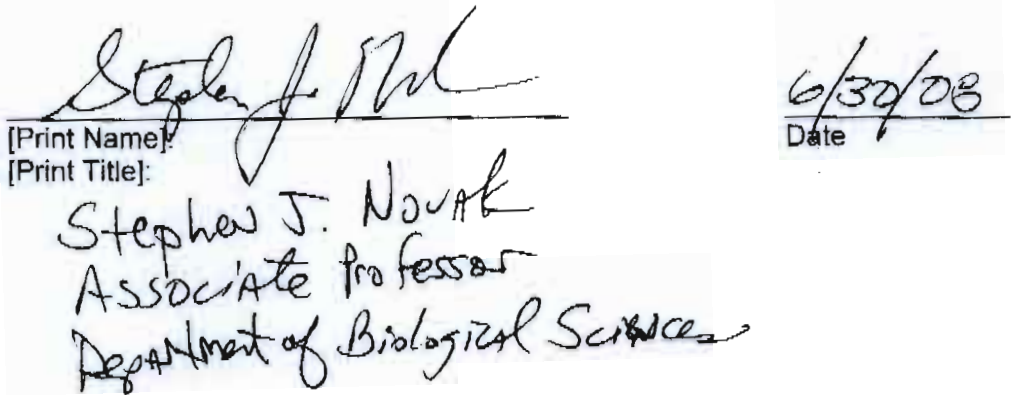 Stephen J. Novak 6/30/08
[Print Name]: Date
[Print Title]:
Stephen J. Novak
Associate Professor
Department of Biological Sciences